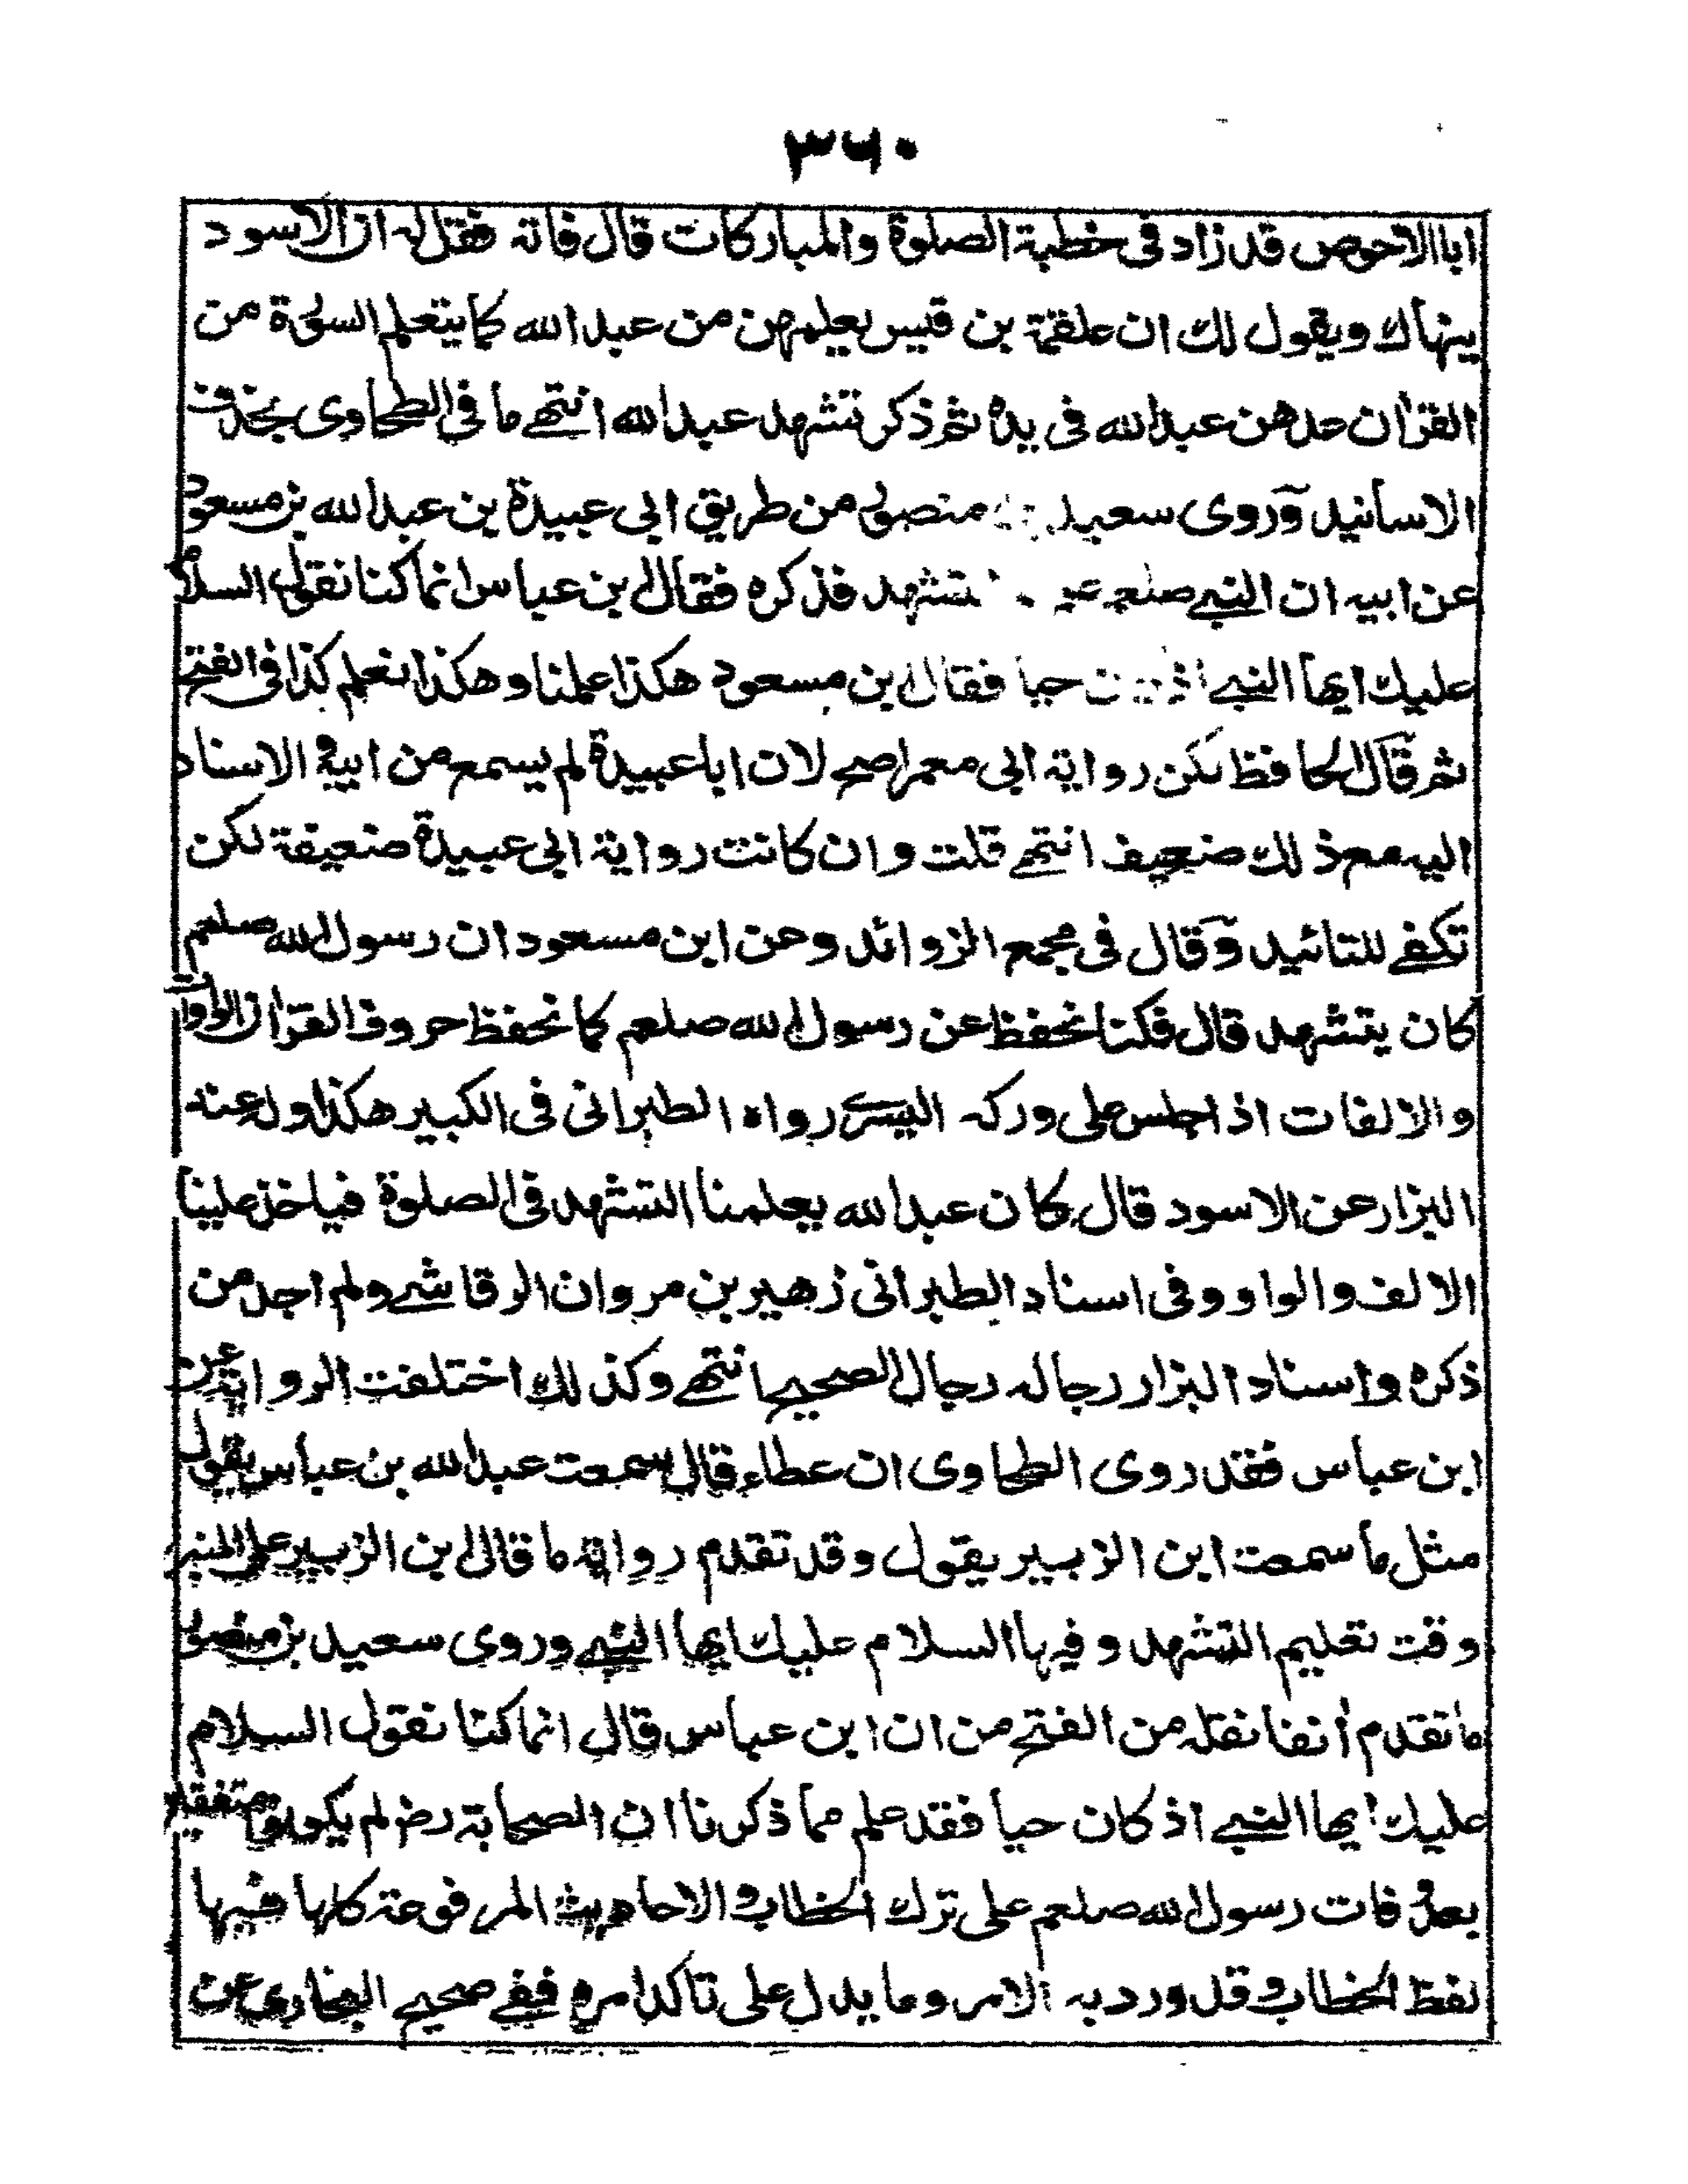 ٣٦٠
ابا الاحوص قد زاد في خطبة الصلوة والمباركات قال فاته فقل له ان الاسود
ينهاك ويقول لك ان علقمة بن قيس يعلمهن من عبد الله كما يتعلم السورة من
القرأن عدهن عبد الله في يده ثم ذكر تشهد عبد الله انتهے ما في الطحاوى بحذف
الاسانيد وروى سعيد منصور من طريق ابى عبيدة بن عبد الله بن مسعود
عن ابيه ان النبے صلعم تشهد فذكره فقال ابن عباس انما كنا نقول السلام
عليك ايها النبے حيا فقال ابن مسعود هكذا علمنا وهكذا نعلم كذا في الفتح
ثم قال الحافظ لكن رواية ابى معمر اصح لان ابا عبيدة لم يسمع من ابيه و الاسناد
اليه مع ذلك ضعيف انتهے قلت وان كانت رواية ابى عبيدة ضعيفة لكن
تكفے للتائيد وقال في مجمع الزوائد وعن ابن مسعود ان رسول الله صلعم
كان يتشهد قال فكنا نحفظ عن رسول الله صلعم كما نحفظ حروف القرأن الواوات
والالفات اذا جلس على وركه اليسرے رواه الطبرانى في الكبير هكذا وله عند
البزار عن الاسود قال كان عبد الله يعلمنا التشهد في الصلوة فياخذ علينا
الالف والواو وفى اسناد الطبرانى زهير بن مروان الرقاشے ولم اجد من
ذكره واسناد البزار رجاله رجال الصحيح انتهے وكذلك اختلفت الرواية عن
ابن عباس فقد روى الطحاوى ان عطاء قال سمعت عبد الله بن عباس يقول
مثل ما سمعت ابن الزبير يقول وقد تقدم رواية ما قال ابن الزبير على المنبر
وقت تعليم التشهد وفيها السلام عليك ايها النبے وروى سعيد بن منصور
ما تقدم أنفا نقله من الفتح من ان ابن عباس قال انما كنا نقول السلام
عليك ايها النبے اذ كان حيا فقد علم مما ذكرنا ان الصحابة رض لم يكونوا متفقين
بعد وفات رسول الله صلعم على ترك الخطاب و الاحاديث المرفوعة كلها فيها
لفظ الخطاب و قد ورد به الامر وما يدل على تاكد امره ففے صحيح البخارى عن